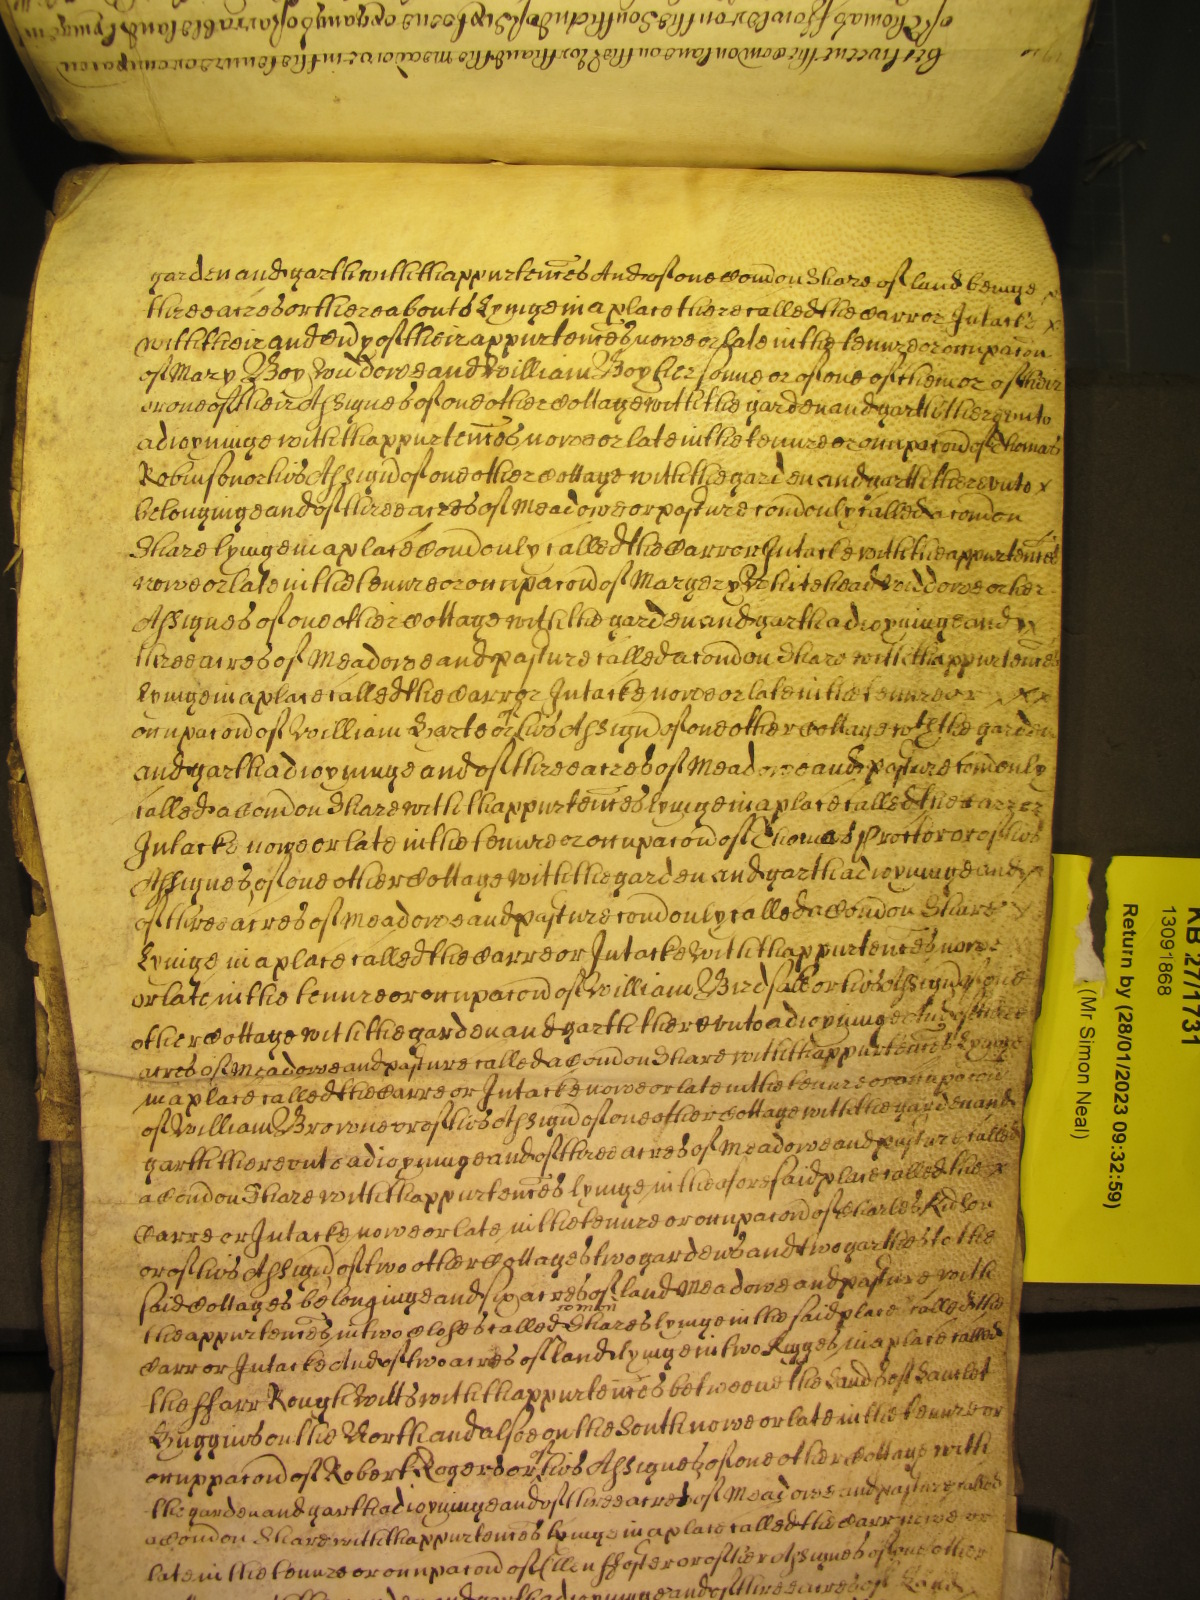 garden and garth with thappurtenc̃es And of one Com̃on Share of land beinge
three acres or thereabouts Lyinge in a place there called the Carr or Intacke
with their and eu̾y of their appurtenc̃es nowe or late in the tenure or occupac̃on
of Mary Boy Widdowe and William Boy her sonne or of one of them or of their
or one of their Assignes of one other Cottage with the garden and garth therevnto
adioyninge with thappurtenc̃es nowe or late in the tenure or occupac̃on of Thomas
Robinson or his Assign̄ of one other Cottage with the garden and garth therevnto
belonginge and of three acres of Meadowe or pasture com̃only called a com̃on
Share lyinge in a place Com̃only called the Carr or Intacke with the appurtenc̃es
nowe or late in the tenure or occupac̃on of Margery Whitehead Widdowe or her
Assignes of one other Cottage with the garden and garth adioyninge and
three acres of Meadowe and pasture called a com̃on Share with thappurtenc̃es
Lyinge in a place called the Carr or Intacke nowe or late in the tenure or
occupac̃on of William Harte or of his Assign̄ of one other Cottage wth the garden
and garth adioyninge and of three acres of Meadowe and pasture com̃only
called a Com̃on Share with thappurtenc̃es lyinge in a place called the Carr or
Intacke nowe or late in the tenure or occupac̃on of Thomas Proctor or of his
Assignes of one other Cottage with the garden and garth adioyninge and
of three acres of Meadowe and pasture com̃only called a Com̃on Share
Lyinge in a place called the Carre or Intacke with thappurtenc̃es nowe
or late in the tenure or occupac̃on of William Birdsall or his Assign̄ of one
other Cottage with the garden and garth therevnto adioyninge and of three
acres of Meadowe and pasture called a Com̃on Share with thappurtenc̃es Lyinge
in a place called the Carre or Intacke nowe or late in the tenure or occupac̃on
of William Browne or of his Assign̄ of one other Cottage with the garden and
garth therevnto adioyninge and of three acres of Meadowe and pasture called
a Com̃on Share with thappurtenc̃es lyinge in the aforesaid place called the
Carre or Intacke nowe or late in the tenure or occupac̃on of Charles Kidson
or of his Assign̄ of two other Cottages two gardens and two garthes to the
said Cottages belonginge and six acres of land Meadowe and pasture with
the appurtenc̃es in two Closes called com̃on Shares lyinge in the said place called the
Carr or Intacke And of two acres of land lyinge in two Rigges in a place called
the ffarr Rough Wilts with thappurtenc̃es betweene the lands of Hamlet
Huggins on the North and alsoe on the South nowe or late in the tenure or
occuppac̃on of Robert Rogers or of his Assignes of one other Cottage with
the garden and garth adioyninge and of three acres of Meadowe and pasture called
a Com̃on Share with thappurtenc̃es lyinge in a place called the Carr nowe or
late in the tenure or occupac̃on of Ellen ffoster or of her Assignes of one other
and garth adioyninge and of three acres of Land
KB 27/1731
13091868
Return by (28/01/2023 09:32:59)
(Mr Simon Neal)